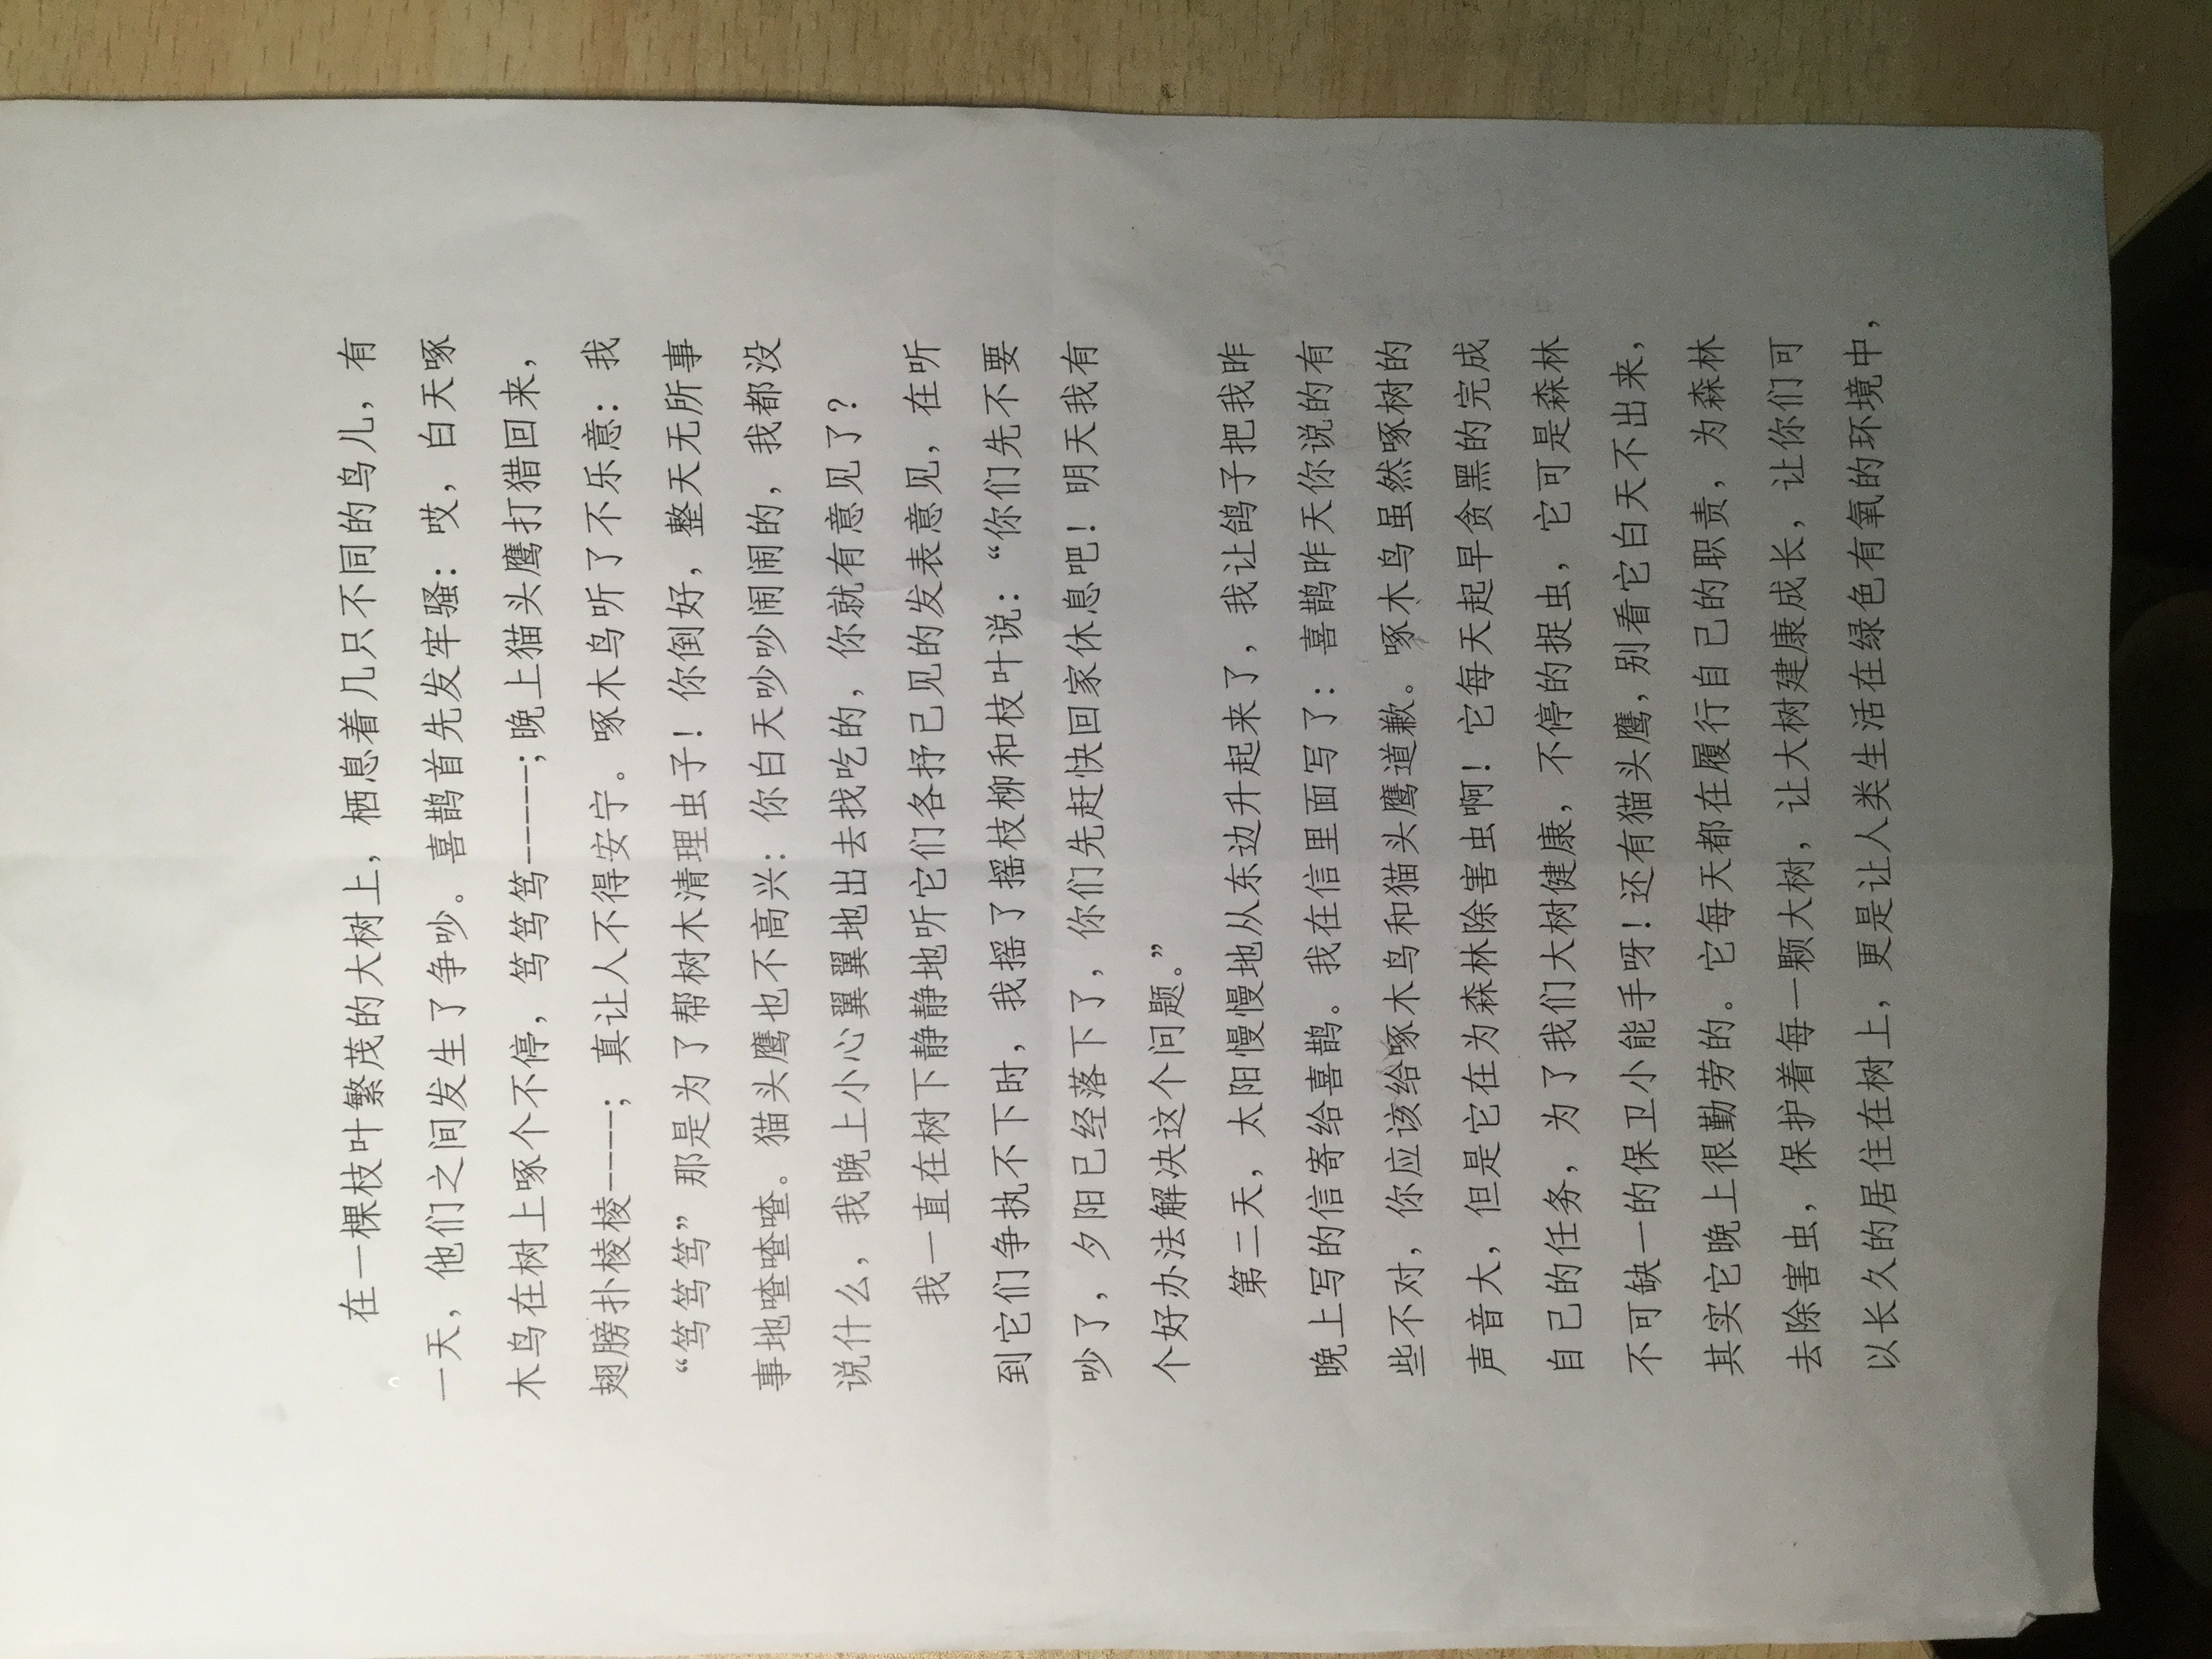 在一棵枝叶繁茂的大树上，栖息着几只不同的鸟儿，有
一天，他们之间发生了争吵。喜鹊首先发牢骚：哎，白天啄
木鸟在树上啄个不停，笃笃笃------；晚上猫头鹰打猎回来，
翅膀扑棱棱----；真让人不得安宁。啄木鸟听了不乐意：我
“笃笃笃”那是为了帮树木清理虫子！你倒好，整天无所事
事地喳喳喳。猫头鹰也不高兴：你白天吵吵闹闹的，我都没
说什么，我晚上小心翼翼地出去找吃的，你就有意见了？
我一直在树下静静地听它们各抒己见的发表意见，在听
到它们争执不下时，我摇了摇枝柳和枝叶说：“你们先不要
吵了，夕阳已经落下了，你们先赶快回家休息吧！明天我有
个好办法解决这个问题。”
第二天，太阳慢慢地从东边升起来了，我让鸽子把我昨
晚上写的信寄给喜鹊。我在信里面写了：喜鹊昨天你说的有
些不对，你应该给啄木鸟和猫头鹰道歉。啄木鸟虽然啄树的
声音大，但是它在为森林除害虫啊！它每天起早贪黑的完成
自己的任务，为了我们大树健康，不停的捉虫，它可是森林
不可缺一的保卫小能手呀！还有猫头鹰，别看它白天不出来，
其实它晚上很勤劳的。它每天都在履行自己的职责，为森林
去除害虫，保护着每一颗大树，让大树建康成长，让你们可
以长久的居住在树上，更是让人类生活在绿色有氧的环境中，